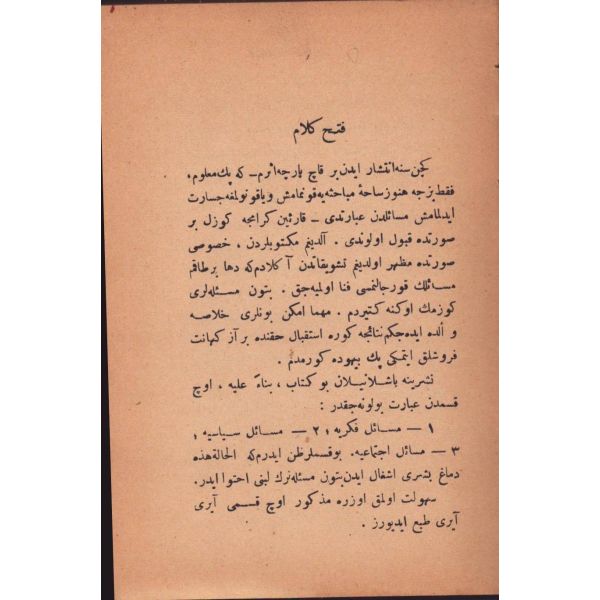 فتح كلام
كچن سنه انتشار ايدن بر قاچ پارچه اثرم ــ كه پك معلوم،
فقط بزجه هنوز ساحهٔ مباحثه‌يه قونمامش ويا قونولمغه جسارت
ايدلمامش مسائلدن عبارتدى ــ قارئين كرامجه كوزل بر
صورتده قبول اولوندى . آلديغم مكتوبلردن ، خصوصى
صورتده مظهر اولديغم تشويقاتدن آكلادم كه دها بر طاقم
مسائلك قورجالنمسى فنا اولميه‌جق . بتون مسئله‌لرى
كوزمك اوكنه كتيردم . مهما امكن بونلرى خلاصه
و الده ايده‌جكم نتائجه كوره استقبال حقنده بر آز كهانت
فروشلق ايتمكى پك بيهوده كورمدم .
نشرينه باشلانيلان بو كتاب ، بناءً عليه ، اوچ
قسمدن عبارت بولونه‌جقدر :
١ — مسائل فكريه ، ٢ — مسائل سياسيه ،
٣ — مسائل اجتماعيه . بو قسملر ظن ايدرم كه الحالة هذه
دماغ بشرى اشغال ايدن بتون مسئله‌نرك لبنى احتوا ايدر .
سهولت اولمق اوزره مذكور اوچ قسمى آيرى
آيرى طبع ايديورز .